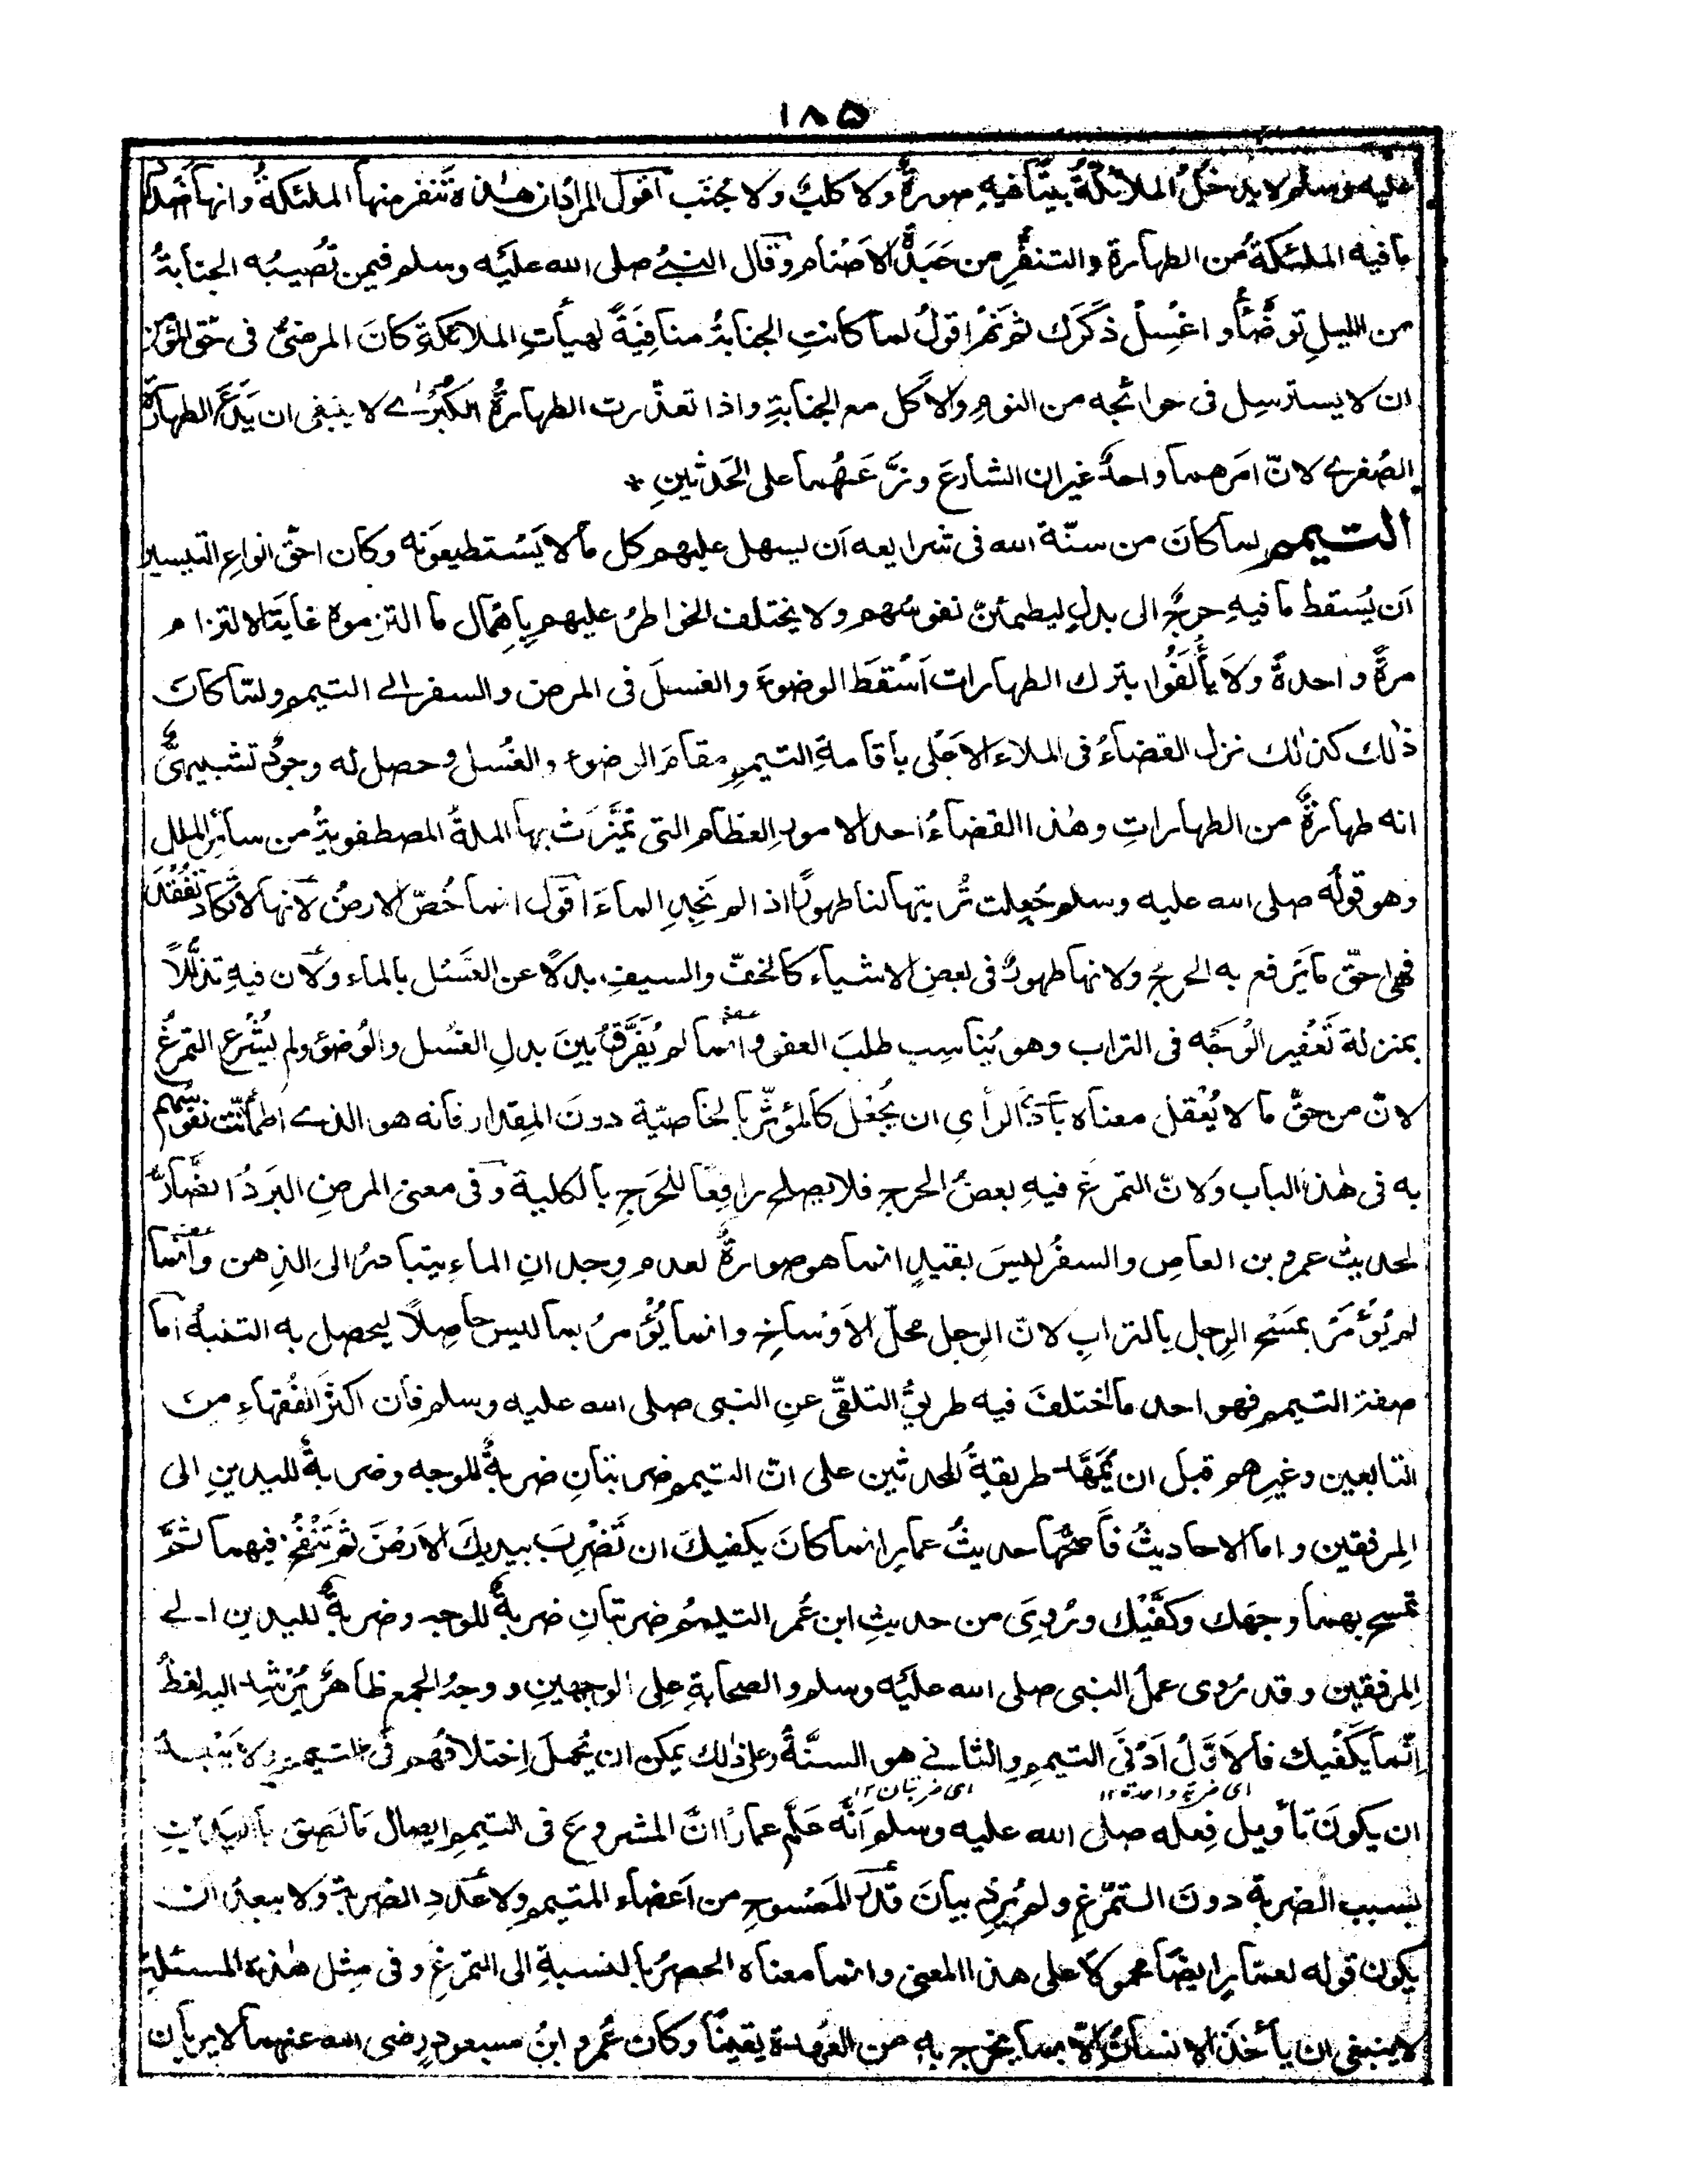 ١٨٥
عليه وسلم لا يدخل الملائكةُ بيتًا فيهِ صورةٌ ولا كلبٌ ولا جُنُب اقول المراد ان هذه تَنفر منها الملئكةُ وانها ضد
ما فيه الملئكةُ من الطهارة والتنفّرِ من عَبَدةِ الاَصْنام وقال النبيُّ صلى الله عليْه وسلم فيمن تُصيبُه الجنابةُ
من الليلِ توضّأ واغسِلْ ذكَرَك ثم نَمْ اقولُ لما كانتِ الجنابةُ منافيةً لهيأتِ الملائكةِ كانَ المرضىُّ فى حق المؤمن
ان لا يسترسِل فى حوائجه من النومِ والاكل مع الجنابةِ واذا تعذّرت الطهارةُ الكبْرٰے لا ينبغى ان يَدَعَ الطهارة
الصُغرے لانّ امرَهما واحدٌ غير ان الشارعَ وزّعَهُما على الحَدثينِ *
التيمم لما كانَ من سنّة الله فى شرايعه اَن يسهل عليهم كل ما لا يَسْتطيعونَه وكان احقّ انواعِ التيسير
اَن يُسقط ما فيهِ حرجٌ الى بدلٍ ليطمئنّ نفوسُهم ولا يختلف الخواطرُ عليهم باِهْمال ما التزموه غايةَ الالتزام
مرةً واحدةً ولاَ يأْلَفُوا بترك الطهارات اَسْقَطَ الوضوءَ والغسلَ فى المرض والسفر الے التيمم ولمّا كانَ
ذٰلك كذٰلك نزل القضاءُ فى الملاءِ الاَعْلى بأقامةِ التيممِ مقامَ الوضوء والغُسل وحصل له وجودٌ تشبيهىٌّ
انه طهارةٌ من الطهاراتِ وهٰذا القضاءُ احد الامورِ العظام التى تميَّزَتْ بها الملةُ المصطفويةُ من سائر الملل
وهو قولُه صلى الله عليه وسلم جُعِلت تُربتها لنا طهورًا اذا لم نَجِدِ الماءَ اقول انما خُصّ الارضُ لانها لا تكاد تفقد
فهى احقّ ما يَرفع به الحرج ولانها طهورٌ فى بعضِ الاشياء كالخفّ والسيفِ بدلًا عن الغَسْل بالماء ولان فيهِ تذلّلًا
بمنزلة تَعْفير الْوَجْه فى التراب وهو يُناسِب طلبَ العفو وانما لم يُفَرَّقْ بينَ بدلِ الغسْل والوُضؤ ولم يُشْرع التمرغُ
لانّ من حقّ ما لا يُعْقل معناه بأدئ الرأى ان يُجْعل كالمؤثّر بالخاصيّة دونَ المِقدار فأنه هو الذے اطمأنّت نفوسُهم
به فى هٰذا الباب ولانّ التمرغ فيهِ بعضُ الحرج فلا يصلح رافِعًا للحَرَجِ بالكلية وفى معنى المرضِ البَردُ الضّارّ
لحديثِ عمرو بن العاصِ والسفرُ ليسَ بقيدٍ انما هو صورةٌ لعدم وِجدانِ الماءِ يتبادرُ الى الذِهن وانما
لم يُؤمَرْ بمَسْحِ الرِجل بالترابِ لانّ الرِجل محلّ الاَوْساخِ وانما يُؤْمرُ بما ليس حاصِلًا ليحصل به التنبهُ اما
صفة التيمم فهو احد ما اختلفَ فيه طريقُ التلقّى عنِ النبى صلى الله عليه وسلم فأن اكثرَ الفُقهاءِ من
التابعين وغيرِهم قبل ان تُمَهَّد طريقةُ المحدثين على انّ التيمم ضربتانِ ضربةٌ للوجه وضربةٌ لليدينِ الى
المِرفقين واما الاحاديثُ فأَصَحُّها حديثُ عمارٍ انما كانَ يكفيكَ ان تَضْرِبَ بيديكَ الاَرْضَ ثم تَنْفُخ فيهما ثمّ
تمسح بهما وجهَك وكفَّيْك ورُوِىَ من حديثِ ابن عُمر التيممُ ضربتانِ ضربةٌ للوجه وضربةٌ لليدين الے
المِرفقين وقد رُوى عملُ النبى صلى الله عليْه وسلم والصحابةِ على الوجهينِ ووجهُ الجمع ظاهرٌ يُرْشد اليه لفظُ
اِنّما يَكْفيك فالاَوّلُ اَدْنَى التيممِ والثانے هو السنَّةُ وعلى ذٰلك يمكن ان يُحملَ اِختلافُهم فى التيممِ ولا يَبْعدُ
اى ضربة واحدة ١٢ اى ضربتان ١٢
ان يكونَ تأويل فِعله صلى الله عليه وسلم اَنّه عَلَّم عمارًا انَّ المشروعَ فى التيممِ ايصال ما لَصِق باليدَيْنِ
بسبب الضربة دونَ التمرّغِ ولم يُرِد بيانَ قَدْر المَمْسوحِ من اَعضاء المتيمم ولا عَددِ الضربة ولا يبعد ان
يكون قوله لعمّارٍ ايضًا محمولًا على هذا المعنى وانما معناه الحصرُ بالنسبةِ الى التمرغِ وفى مِثل هٰذهِ المسئلةِ
لا ينبغى ان يأخذَ الانسانُ اِلّا بما يخرج بهِ من العُهدة يقينًا وكان عُمر وابنُ مسعودٍ رضى الله عنهما لا يريان